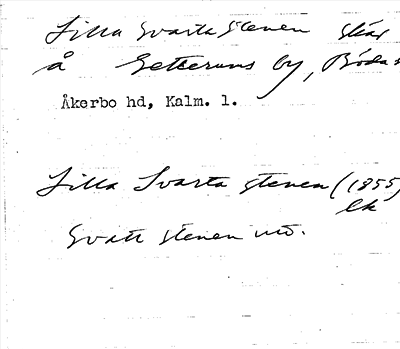 Lilla Svarta stenen skär
å Getteruns by, Böda s
Åkerbo hd, Kalm. l.
Lilla Svarta stenen (1855)
lk
Svart stenen